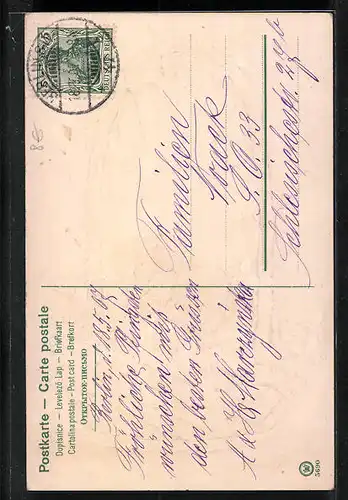 Postkarte — Carte postale
Dopisnice — Levelező Lap — Briefkaart
Cartolina postale — Post card — Brefkort
Открытое письмо
Berlin d. 18.5.07
Fröhliche Pfingsten
wünschen mit
den besten Grüssen
A u H
Familien
S.O. 33
DEUTSCHES REICH
5690